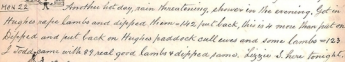 MON 22 Another hot day, rain threatening, shower in the evening. Got in
Hughes rape lambs and dipped them = 142 put back, this is 4 more than put on
Dipped and put back on Hughes paddock cull ewes and some lambs = 123
Todd came with 89 real good lambs & dipped same. Lizzie S. here tonight.